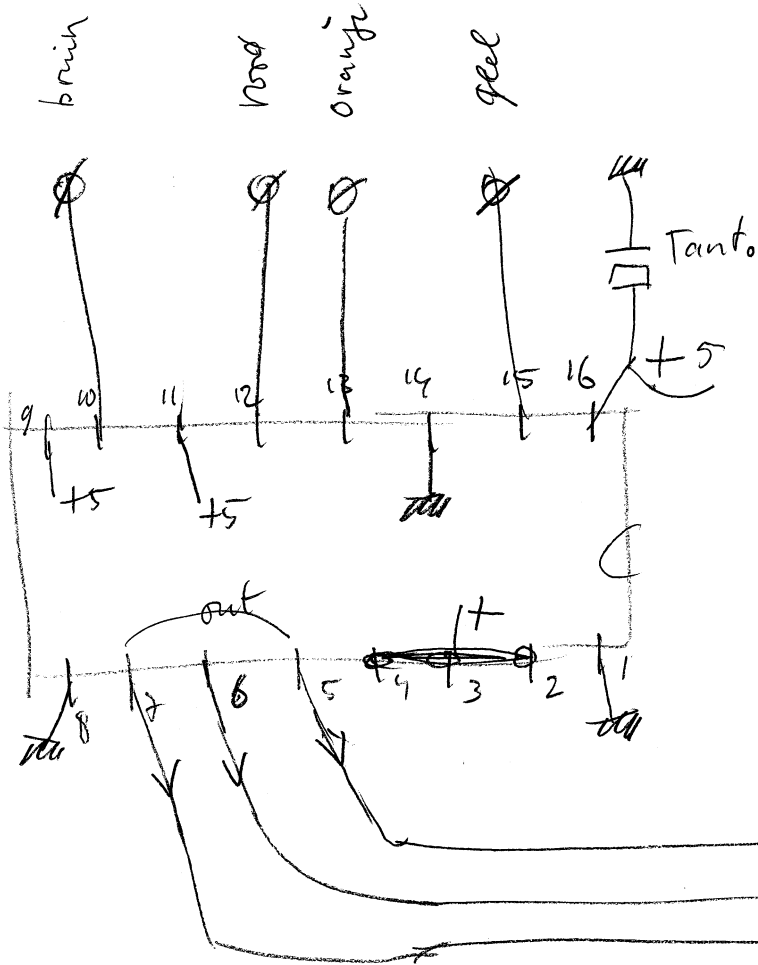 bruin rood oranje geel
Tant.
+5
9 10 11 12 13 14 15 16
+5 +5
out +
8 7 6 5 4 3 2 1